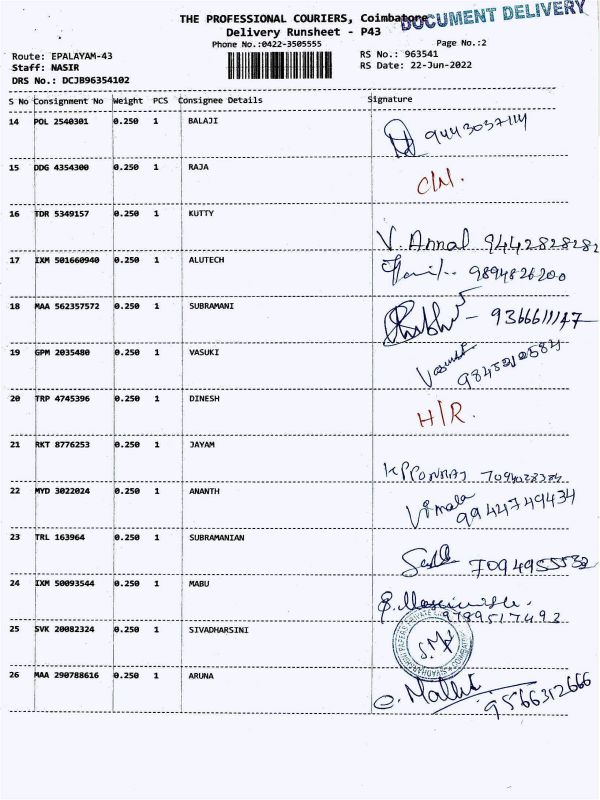 THE PROFESSIONAL COURIERS, Coimbatore
DOCUMENT DELIVERY
Delivery Runsheet - P43
Phone No.:0422-3505555
Page No.:2
Route: EPALAYAM-43
RS No.: 963541
Staff: NASIR
RS Date: 22-Jun-2022
DRS No.: DCJB96354102
S No Consignment No Weight PCS Consignee Details Signature
14 POL 2540301 0.250 1 BALAJI
9443037114
15 DDG 4354300 0.250 1 RAJA
C/M.
16 TDR 5349157 0.250 1 KUTTY
V. Ammal 9442828282
17 IXM 501660940 0.250 1 ALUTECH
9894826200
18 MAA 562357572 0.250 1 SUBRAMANI
Prabhu - 9366611147
19 GPM 2035480 0.250 1 VASUKI
Vasuki
20 TRP 4745396 0.250 1 DINESH
H/R.
21 RKT 8776253 0.250 1 JAYAM
K PPONRAJ
22 MYD 3022024 0.250 1 ANANTH
Vimala
9944749434
23 TRL 163964 0.250 1 SUBRAMANIAN
7094955532
24 IXM 50093544 0.250 1 MABU
9789517492
25 SVK 20082324 0.250 1 SIVADHARSINI
26 MAA 290788616 0.250 1 ARUNA
9566312666